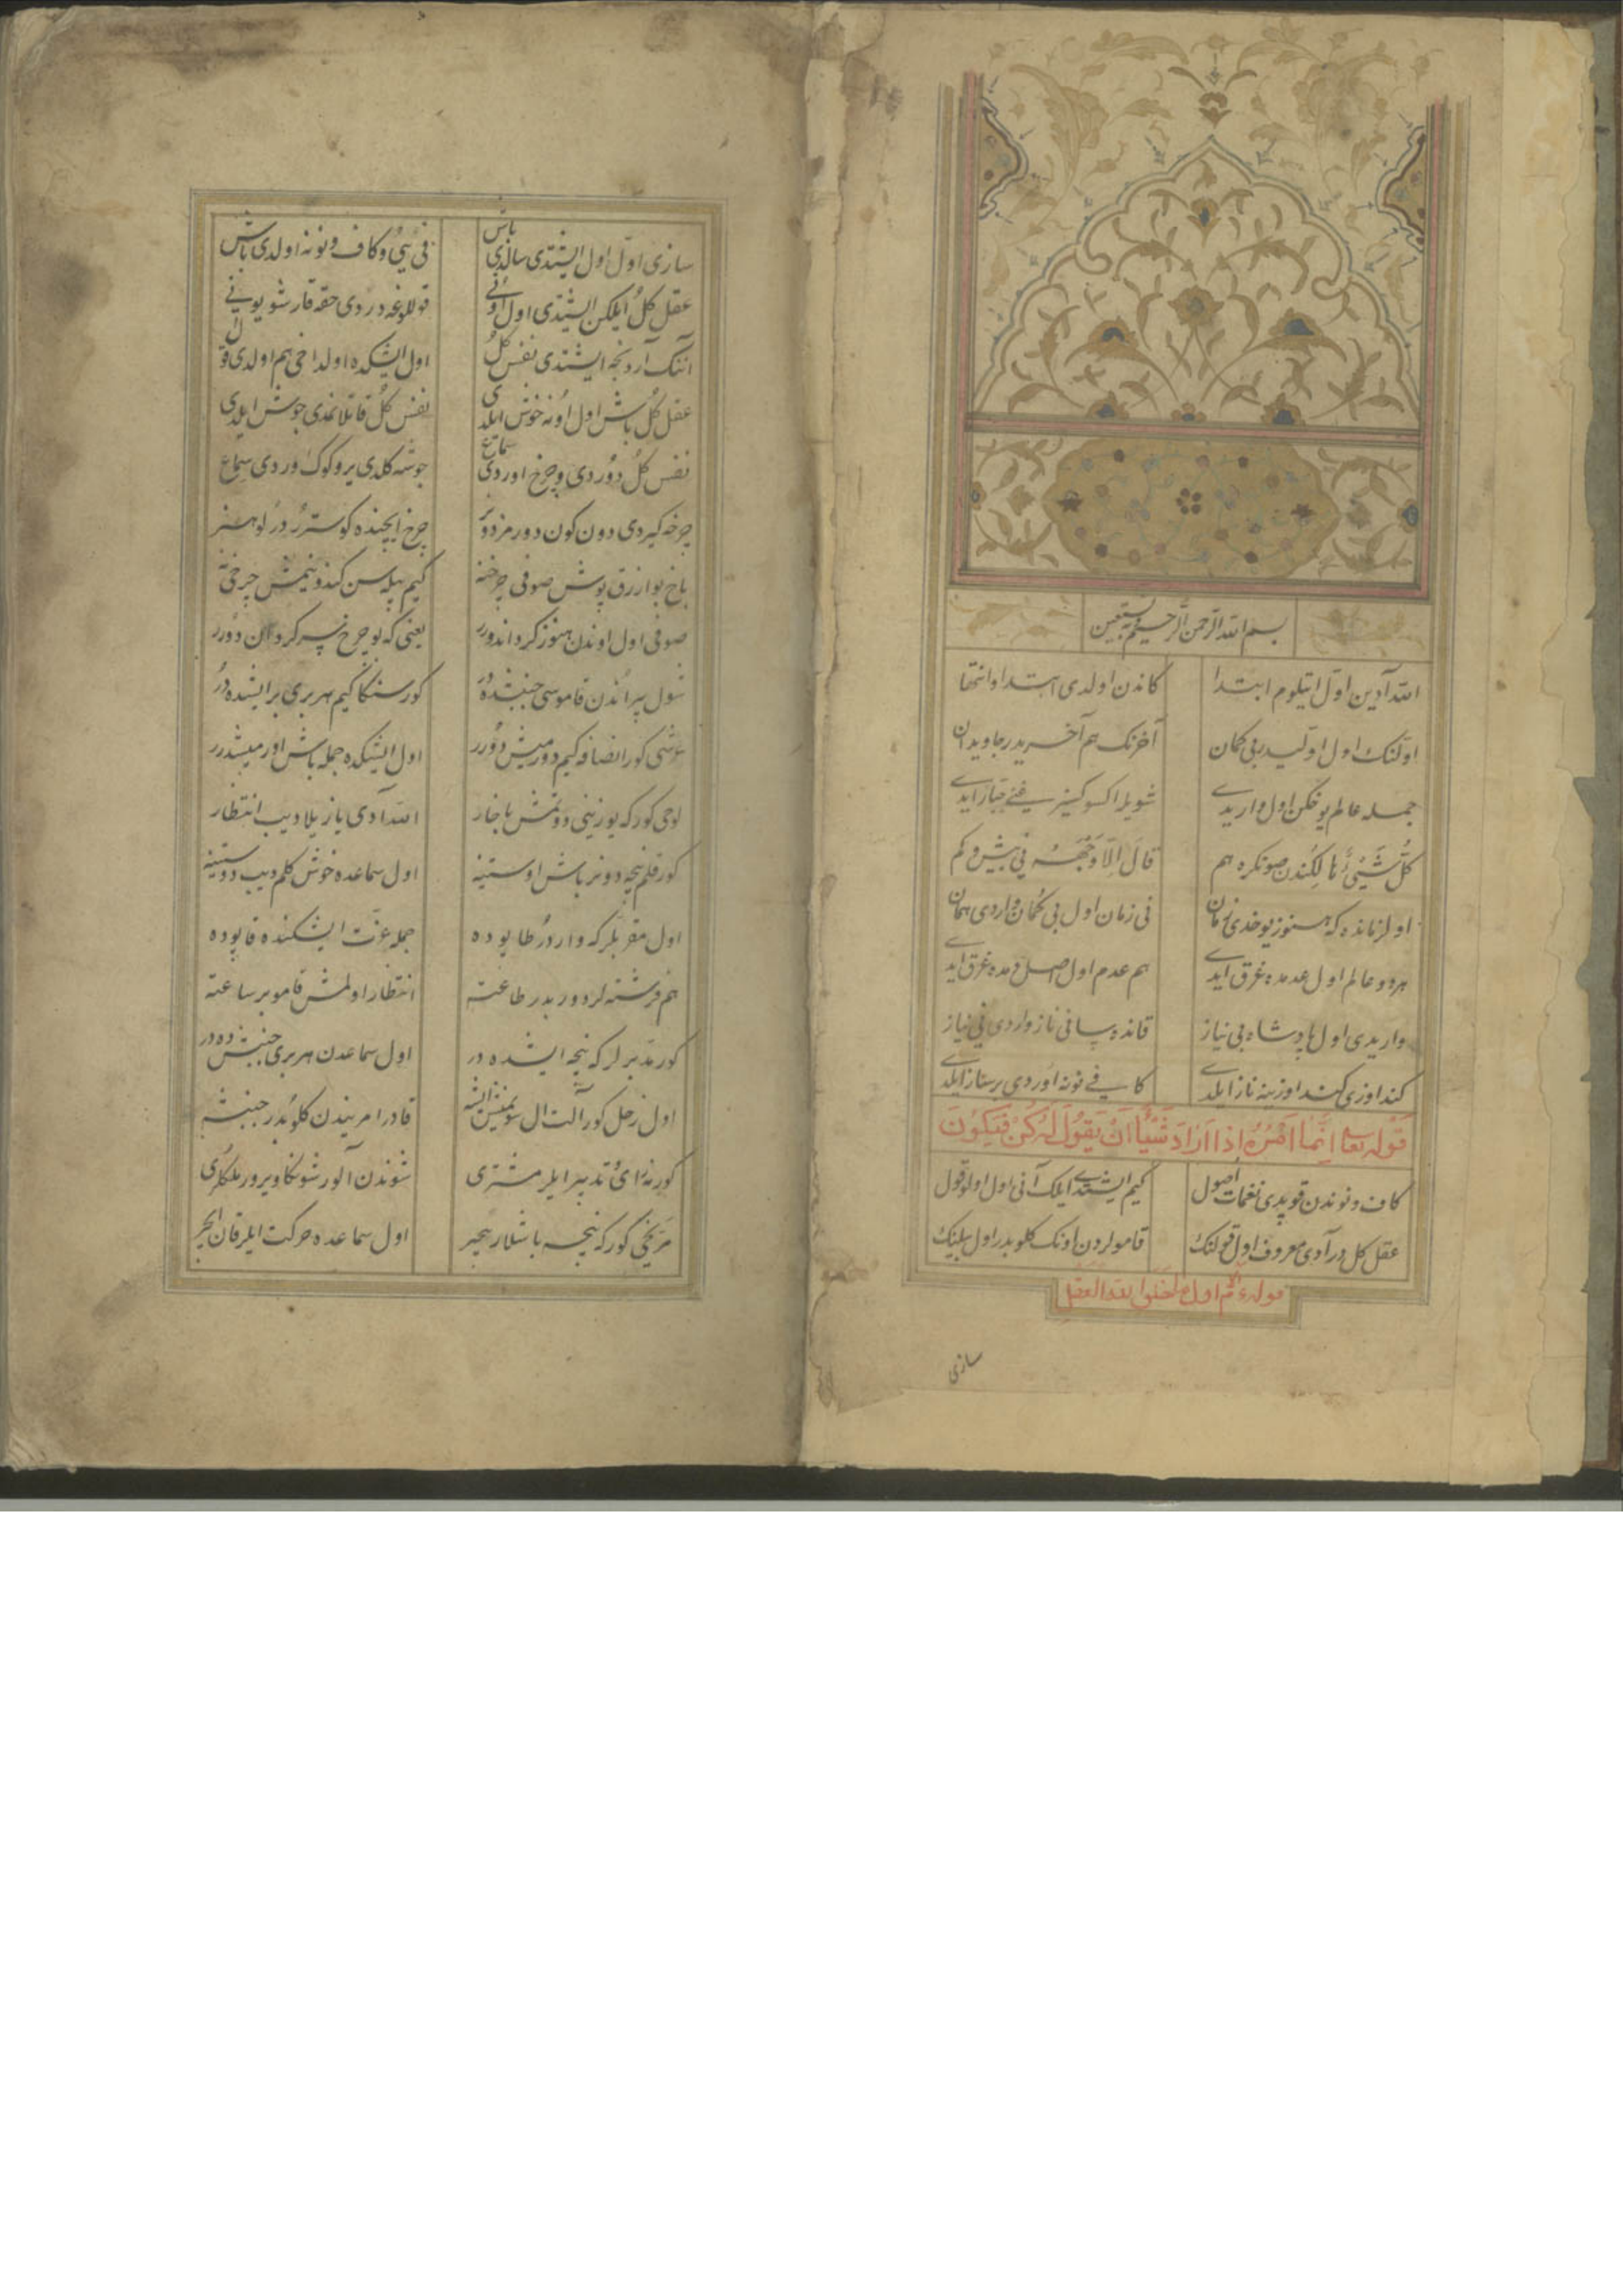 بسم الله الرحمن الرحيم وبه نستعين
الله آدين اول ايتلوم ابتدا كاندن اولدى ابتدا و انتها
اولنك اول اوليدر بى كمان آخرنك هم آخريدر جاويدان
جمله عالم يوغكن اول واريدى شويله اكسوكسز غنى جبار ايدى
كُلُّ شَيْئٍ هالِكٌ ندن صونكره هم قالَ اِلّا وَجْهَهُ نى بيش و كم
اول زمانده كه هنوز يوخدى زمان نى زمان اول بى كمان واردى همان
هر دو عالم اول عدمده غرق ايدى هم عدم اول اصل قدمده غرق ايدى
واريدى اول پادشاه بى نياز قانده پسا نى ناز واردى نى نياز
كند اوزى كند اوزينه ناز ايلدى كافى نونه اوردى بر ساز ايلدى
قوله تعالى اِنَّما اَمْرُهُ اِذا اَرادَ شَيْئاً اَنْ يَقُولَ لَهُ كُنْ فَيَكُونُ
كاف و نوندن قوپدى نغمات اصول كيم ايشتدى ايلك آنى اول اولو قول
عقل كل در آدى معروف اول قولنك قامولردن اونك كلوبدر اول بيلنك
اول ما خلق الله العقل
سازى
سازى اول اول ايشتدى سالدى باش نى يى و كاف و نونه اولدى باش
عقل كل ايلكن ايشتدى اول اونى قوللوغه دردى حقه قارشو يونى
آنك آردنجه ايشتدى نفس كل اول ايشكده اولداخى هم اولدى قول
عقل كل باش اول اونه خوش ايلدى نفس كل قاتلانمدى جوش ايلدى
نفس كل دوردى و چرخ اوردى سماع جوشه كلدى ير و كوك وردى سماع
چرخه كيردى دون كون دورمز دونر چرخ ايچنده كوسترر در لو هنر
باخ بو ازرق پوش صوفى چرخنه كيم پيله سن كندونيمش چرخى نه
صوفى اول اوندن هنوز كردانددرر يعنى كه بو چرخ پسر كردان دورر
شول پير آندن قاموسى جنبشده در كور سنكا كيم هر برى بر ايشده در
عرشى كور انصافه كيم دورميش دورر اول ايشكده جمله باش اورميشدرر
لوحى كور كه يوزينى دوتمش باخار الله آدى يازيلا ديب انتظار
كور قلم نيجه دونر باش اوستينه اول سماعده خوش كلم ديب دوستينه
اول مقربلر كه واردر طاپوده جمله عزت ايشكنده قاپوده
هم فرشته لر دوربدر طاعته انتظار اولمش قامو بر ساعته
كور مدبرلر كه نيجه ايشده در اول سماعدن هر برى جنبشده در
اول زحل كور آلت ال سونمش ايشه قادر امريندن كلوبدر جنبشه
كور نه راى تدبير ايلر مشترى شوندن آلور شونكا ويرور ملكلرى
مريخى كور كه نيجه باشلار هجر اول سماعده حركت ايلر قان ايچر